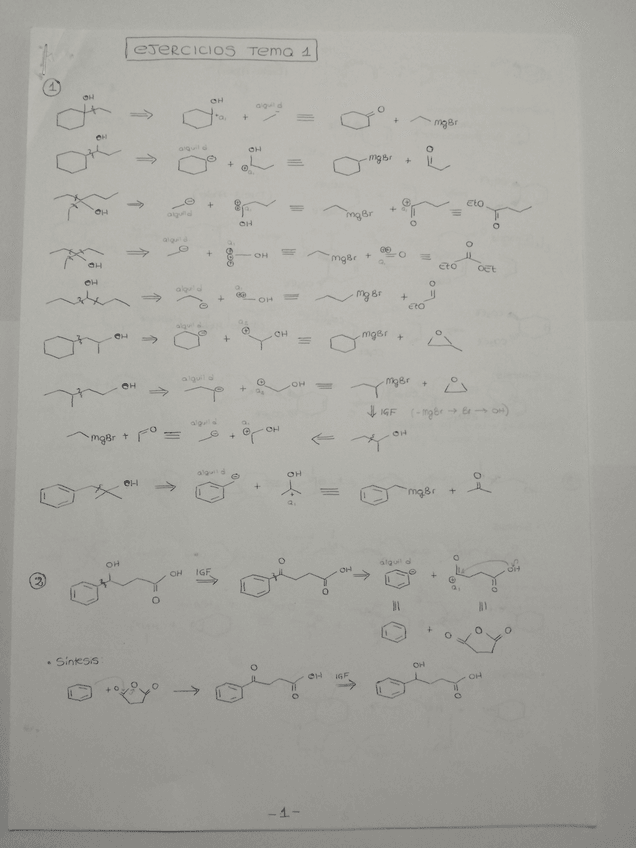 EJERCICIOS TEMA 1
1
OH OH alquil d O
⇒ a1 + ≡ + MgBr
OH alquil d OH MgBr O
⇒ ⊖ + ⊕ a1 ≡ +
OH ⇒ alquil d ⊖ + ⊕ a1 OH ≡ MgBr + ⊕ a1 O ≡ EtO O
OH ⇒ alquil d ⊖ + a1 ⊕ ⊕ ⊕ OH ≡ MgBr + ⊕⊕ a1 O ≡ O EtO OEt
OH ⇒ alquil d ⊖ + a1 ⊕⊕ OH ≡ MgBr + O EtO
OH ⇒ alquil d ⊖ + a2 ⊕ OH ≡ MgBr + O
OH ⇒ alquil d ⊖ + ⊕ a2 OH ≡ MgBr + O
⇓ IGF (-MgBr → Br → OH)
MgBr + O ≡ alquil d ⊖ + a1 ⊕ OH ⇐ OH
OH ⇒ alquil d ⊖ + OH + a1 ≡ MgBr + O
2
OH OH O IGF ⇒ O OH O ⇒ alquil d ⊖ + O ⊕ a1 O OH
≡ ≡
+ O O O
• Síntesis
+ O O O → O OH O IGF ⇒ OH OH O
-1-